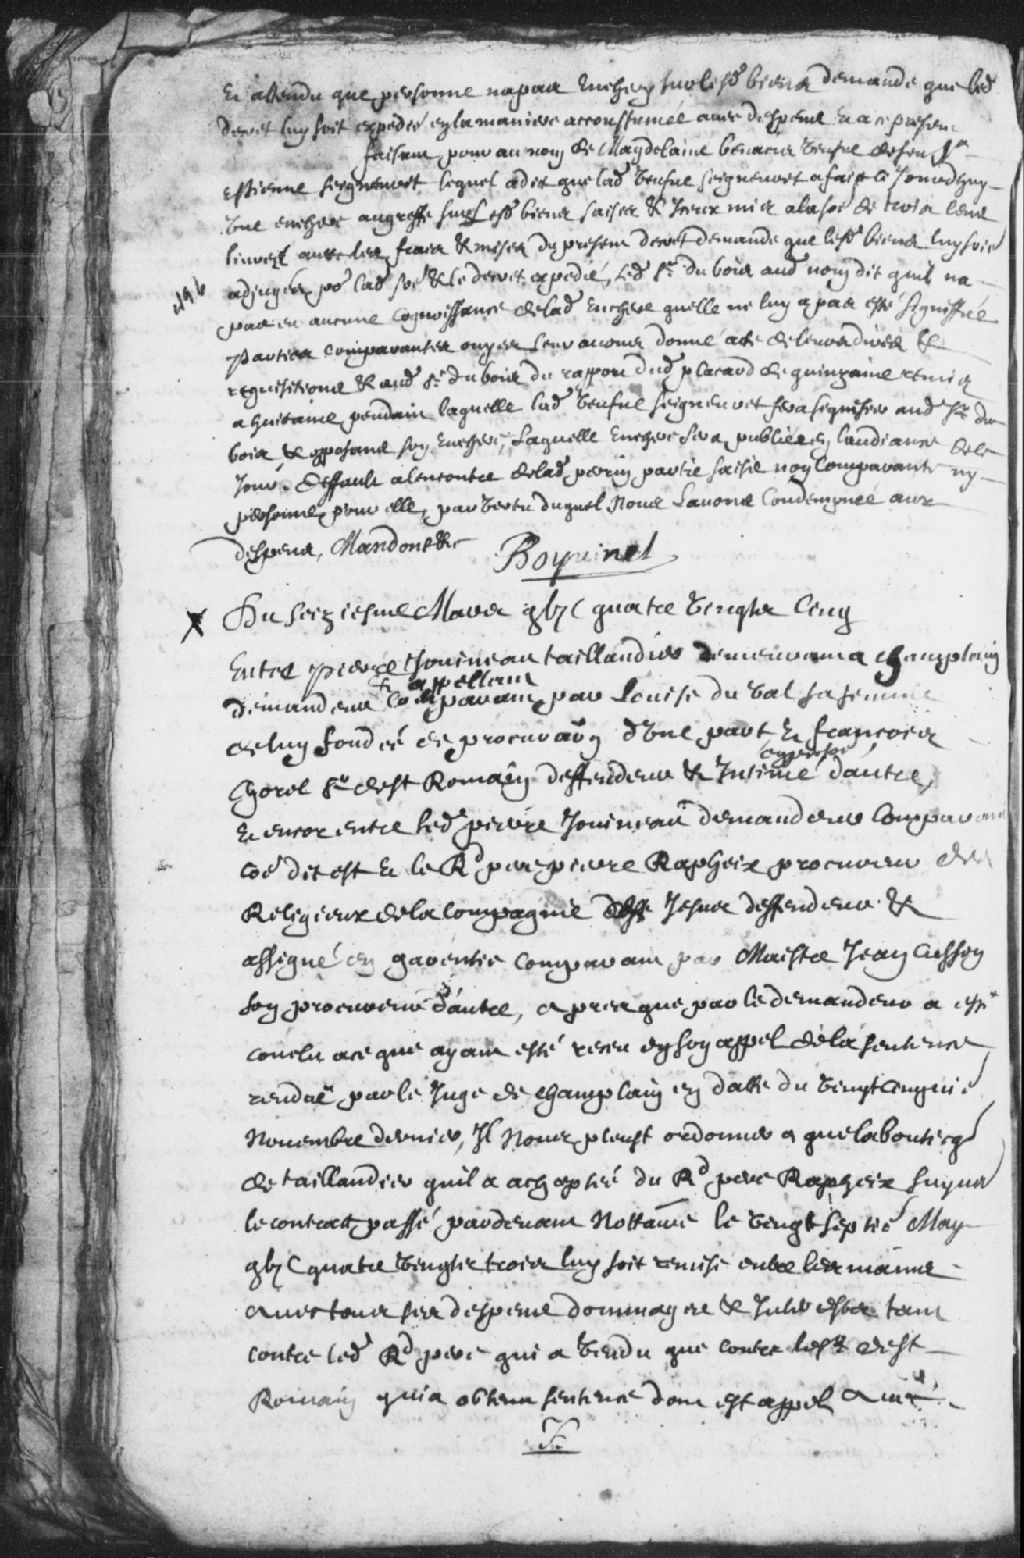 Et attendu que personne na pas Enchery sur lesd biens demande que led
decret luy soit expedié en la maniere accoustumée avec despens Et a ce present
faisant pour au nom de Magdelaine benacis veufve de feu Sr
Estienne seigneuret lequel a dit que lad veufve seigneuret a faict
Une enchere au greffe sur lesd biens saisis & Iceux mis a la so͞e de trois cens
livres outre les fraix & mises du present decret demande que lesd biens luy soi͞e
adjugés po͞r lad so͞e & le decret expedié, Led Sr. du bois aud nom dit quil na
pas eu aucune cognoissance de lad Enchere quelle ne luy a pas esté signiffiée
Parties comparantes ouyes Leur avons donné acte de leurs dires &
requisitions & aud Sr. Du bois du rapport dud placard de quinzaine remis
a huitaine pendant laquelle lad veufve seigneuret fera signifier aud Sr. du
bois & opposans son Enchere, Laquelle Enchere sera publiée en laudiance
Jour. deffault alencontre de lad perrin partie saisie non Comparante ny
personne pour elle, par vertu duquel Nous Lavons Condemnée aux
despens, Mandons &c
Boyvinet
X Du seiziesme Mars gbjC quatre vingts Cinq
Entre pierre Jouineau taillandier demeurant a champlain
demandeur & appellant
Comparant par Louise du val sa femme
de luy fondée de procura͞on dUne part Et françois
Chorel Sr. de st Romain deffendeur & Intimé opposé dautre,
Et encor entre led pierre Jouineau demandeur Comparant
co͞e dit est Et le Rd pere pierre Rapheix procureur des
Religieux de la Compagnie de Jesus deffendeur &
assigné en garentie comparant par Maistre Jean Cusson
son procureur dautre, apres que par le demandeur a esté
conclu a ce que ayant esté receu en son appel de la sentence
rendue par le Juge de champlain en datte du vingt cinquie͞
Novembre dernier, Il Nous pleust ordonner que la boutique
de taillandier quil a achaptée du Rd pere Rapheix suyva͞
le contract passé pardevant Nottaire le vingt septie͞ May
gbjC quatre vingts trois luy soit remise entre les mains
avec tous ses despens dommages & Interests tant
contre led Rd pere qui a vendu que contre led Sr. de st
Romain qui a obtenu sentence dont est appel